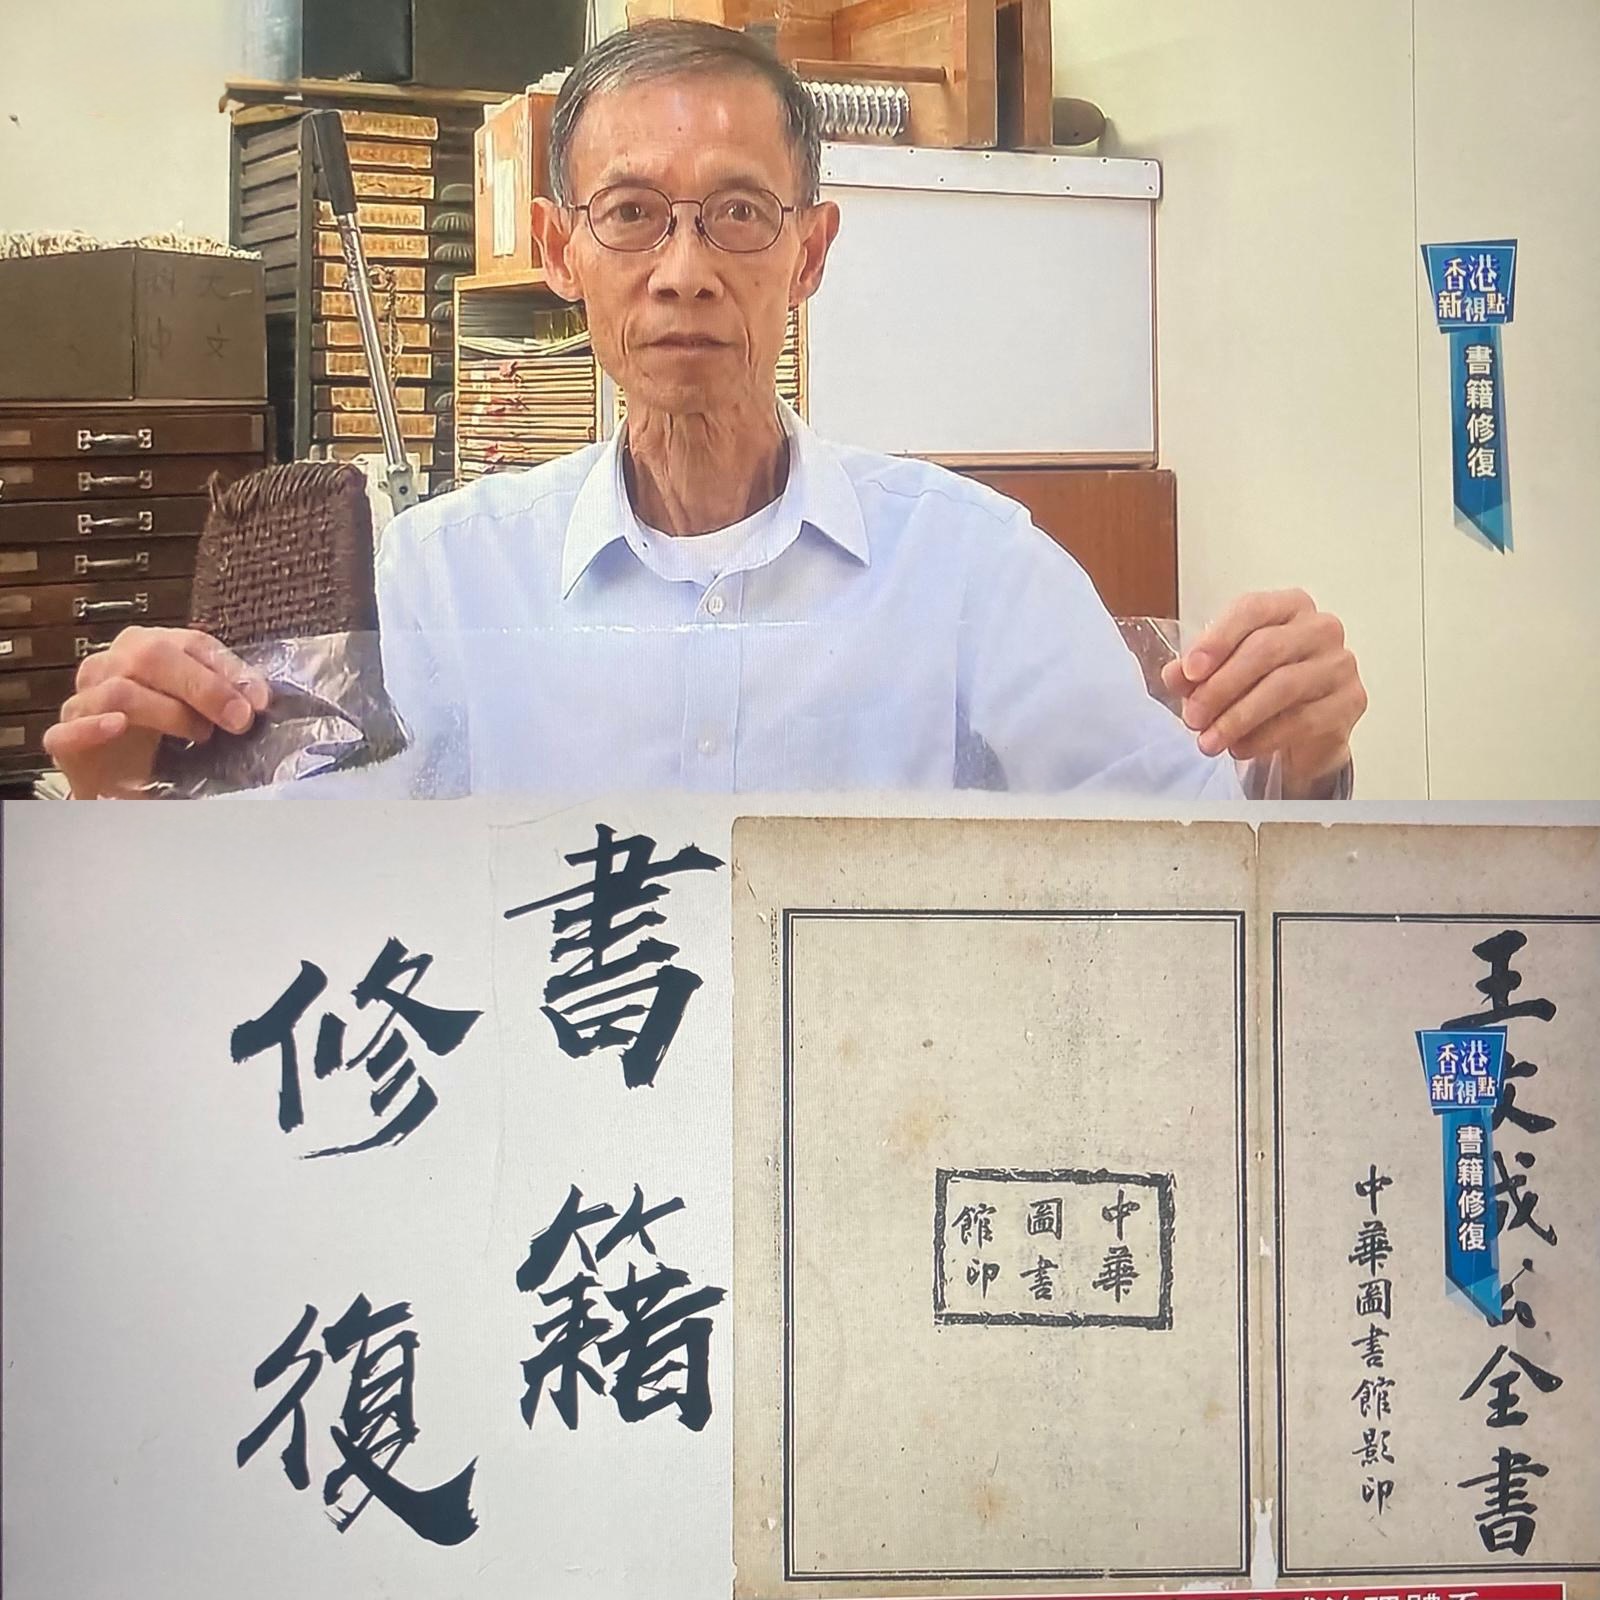 香港
新視點
書籍修復
書籍
修復
中華
圖書
館印
王文成公全書
中華圖書館影印
香港
新視點
書籍修復